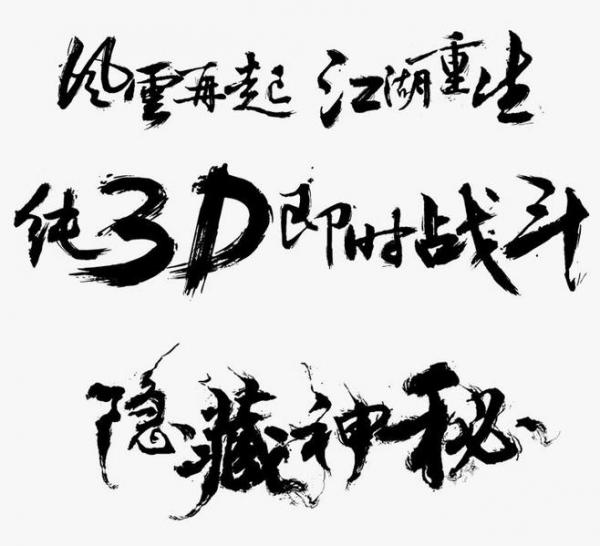 风雲再起 江湖重生
纯3D即时战斗
隐藏神秘